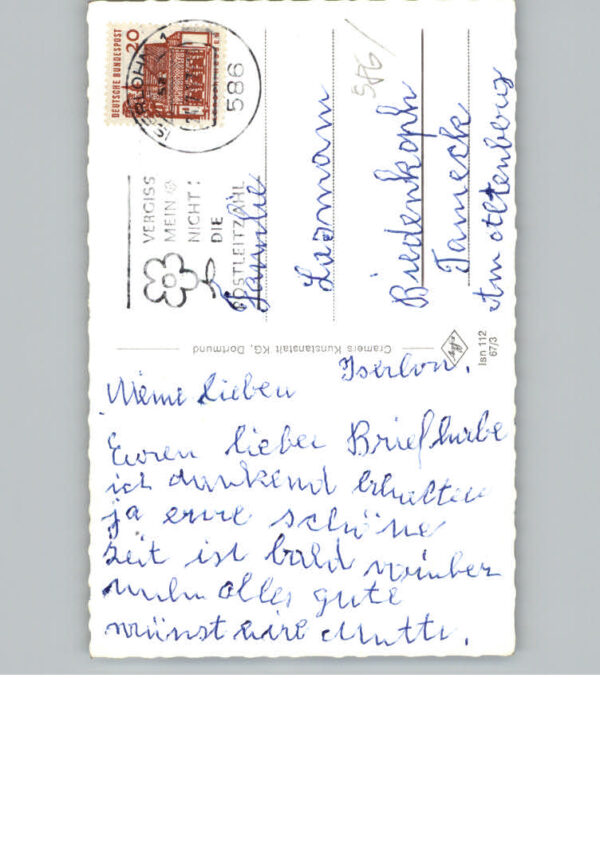 DEUTSCHE BUNDESPOST
20
ISERLOHN 1
586
VERGISS
MEIN
NICHT!
DIE
POSTLEITZAHL
Familie
Laarmann
Biedenkoph
Am Altenberg
Cramers Kunstanstalt KG, Dortmund
Isn 112
67/3
Iserlon.
Meine lieben
Euren lieber Brief habe
ich dankend erhalten
ja eure schöne
zeit ist bald
alles gute
wünst eure Mutti.